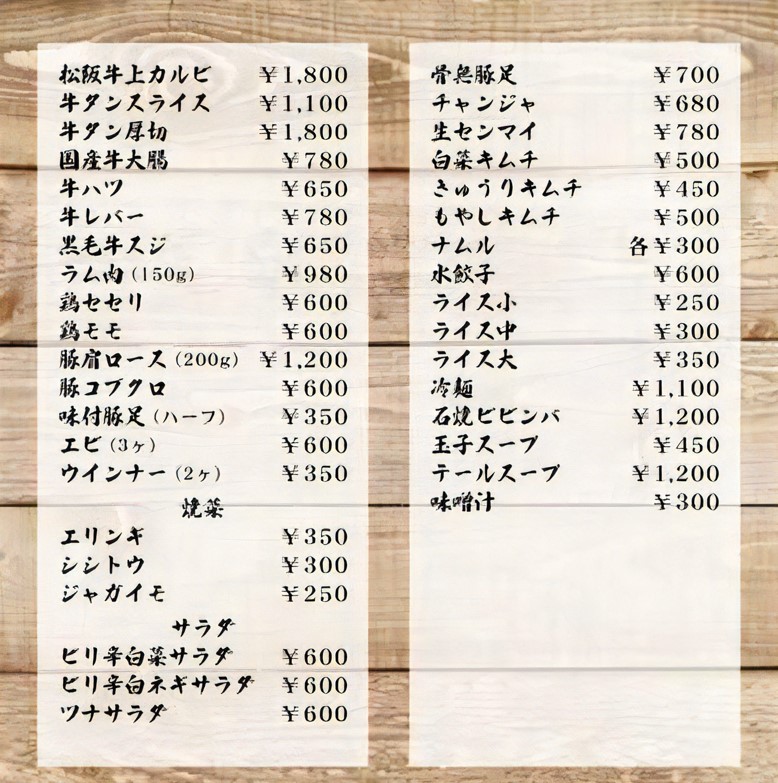 松阪牛上カルビ ¥1,800
牛タンスライス ¥1,100
牛タン厚切 ¥1,800
国産牛大腸 ¥780
牛ハツ ¥650
牛レバー ¥780
黒毛牛スジ ¥650
ラム肉(150g) ¥980
鶏セセリ ¥600
鶏モモ ¥600
豚肩ロース(200g) ¥1,200
豚コブクロ ¥600
味付豚足(ハーフ) ¥350
エビ(3ヶ) ¥600
ウインナー(2ヶ) ¥350
焼菜
エリンギ ¥350
シシトウ ¥300
ジャガイモ ¥250
サラダ
ピリ辛白菜サラダ ¥600
ピリ辛白ネギサラダ ¥600
ツナサラダ ¥600
骨無豚足 ¥700
チャンジャ ¥680
生センマイ ¥780
白菜キムチ ¥500
きゅうりキムチ ¥450
もやしキムチ ¥500
ナムル 各¥300
水餃子 ¥600
ライス小 ¥250
ライス中 ¥300
ライス大 ¥350
冷麺 ¥1,100
石焼ビビンバ ¥1,200
玉子スープ ¥450
テールスープ ¥1,200
味噌汁 ¥300